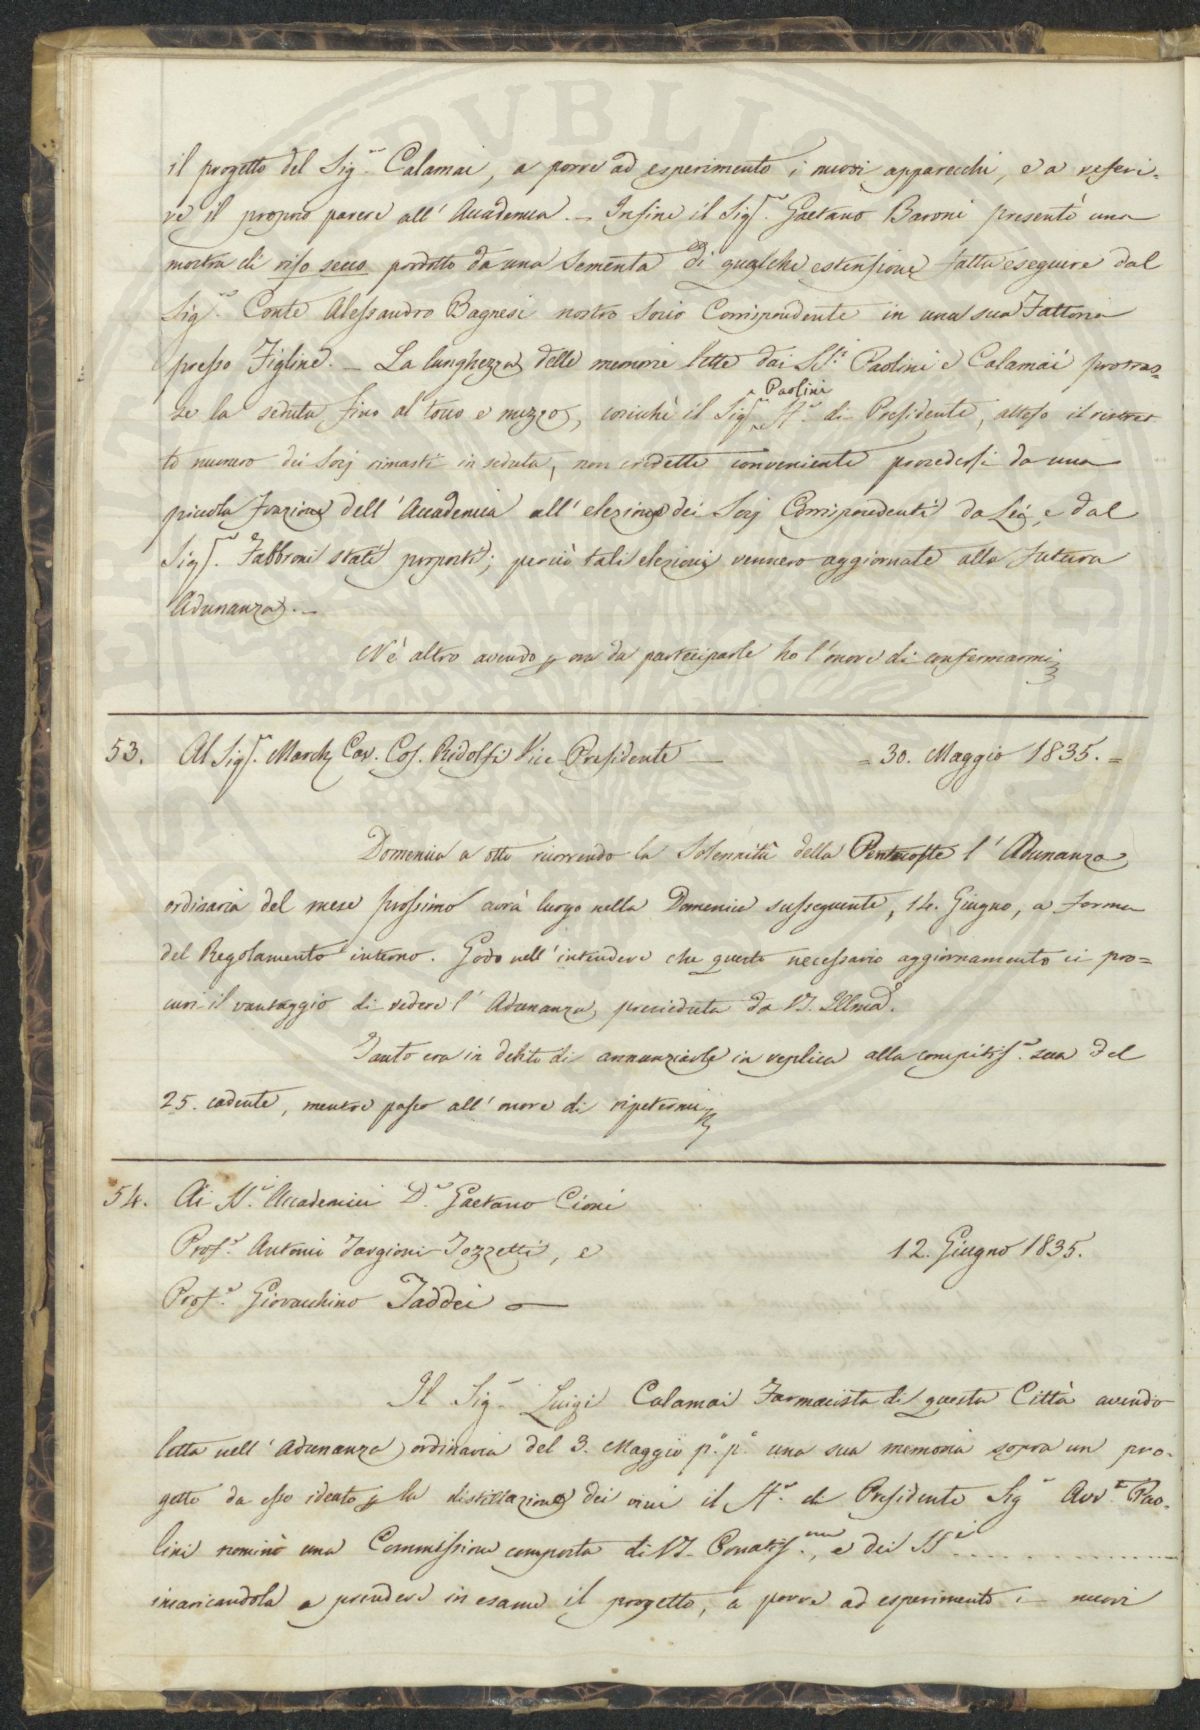 il progetto del Sig.r Calamai, a porre ad esperimento i nuovi apparecchi, e a referi-
re il proprio parere all'Accademia. — Infine il Sigr. Gaetano Baroni presentò una
mostra di riso secco prodotto da una sementa di qualche estensione fatta eseguire dal
Sig.r Conte Alessandro Bagnesi nostro Socio Corrispondente in una sua Fattoria
presso Figline. — La lunghezza delle memorie lette dai SS.ri Paolini e Calamai protras-
se la seduta fino al tocco e mezzo, cosichè il Sigr. Paolini ff.e di Presidente, atteso il ristret-
to numero dei Socj rimasti in seduta, non credette conveniente procedersi da una
piccola frazione dell'Accademia all'elezione dei Socj Corrispondenti da Lei, e dal
Sigr. Fabbroni stati proposti; perciò tali elezioni vennero aggiornate alla futura
Adunanza. —
Nè altro avendo p ora da partecipare ho l'onore di confermarmi
53. Al Sigr. March. Cav. Cos. Ridolfi Vice-Presidente — = 30. Maggio 1835. =
Domenica a otto ricorrendo la Solennità della Pentecoste l'Adunanza
ordinaria del mese prossimo avrà luogo nella Domenica susseguente, 14. Giugno, a forma
del Regolamento interno. Godo nell'intendere che questo necessario aggiornamento ci pro=
curi il vantaggio di vedere l'Adunanza presieduta da VS. Illma.
Tanto era in debito di annunziarle in replica alla compitiss.a sua del
25. cadente, mentre passo all'onore di ripetermi
54. Ai SS.ri Accademici D.r Gaetano Cioni
Prof.r Antonio Targioni-Tozzetti, e 12. Giugno 1835.
Prof.r Giovacchino Taddei —
Il Sig.r Luigi Calamai Farmacista di questa Città avendo
letta nell'Adunanza ordinaria del 3. Maggio p.o p.o una sua memoria sopra un pro-
getto da esso ideato p la distillazione dei vini il ff.e di Presidente Sig.r Avv.o Pao-
lini nominò una Commissione composta di VS. Ornatiss.ma, e dei SS.ri ..............
incaricandola a prendere in esame il progetto, a porre ad esperimento i nuovi